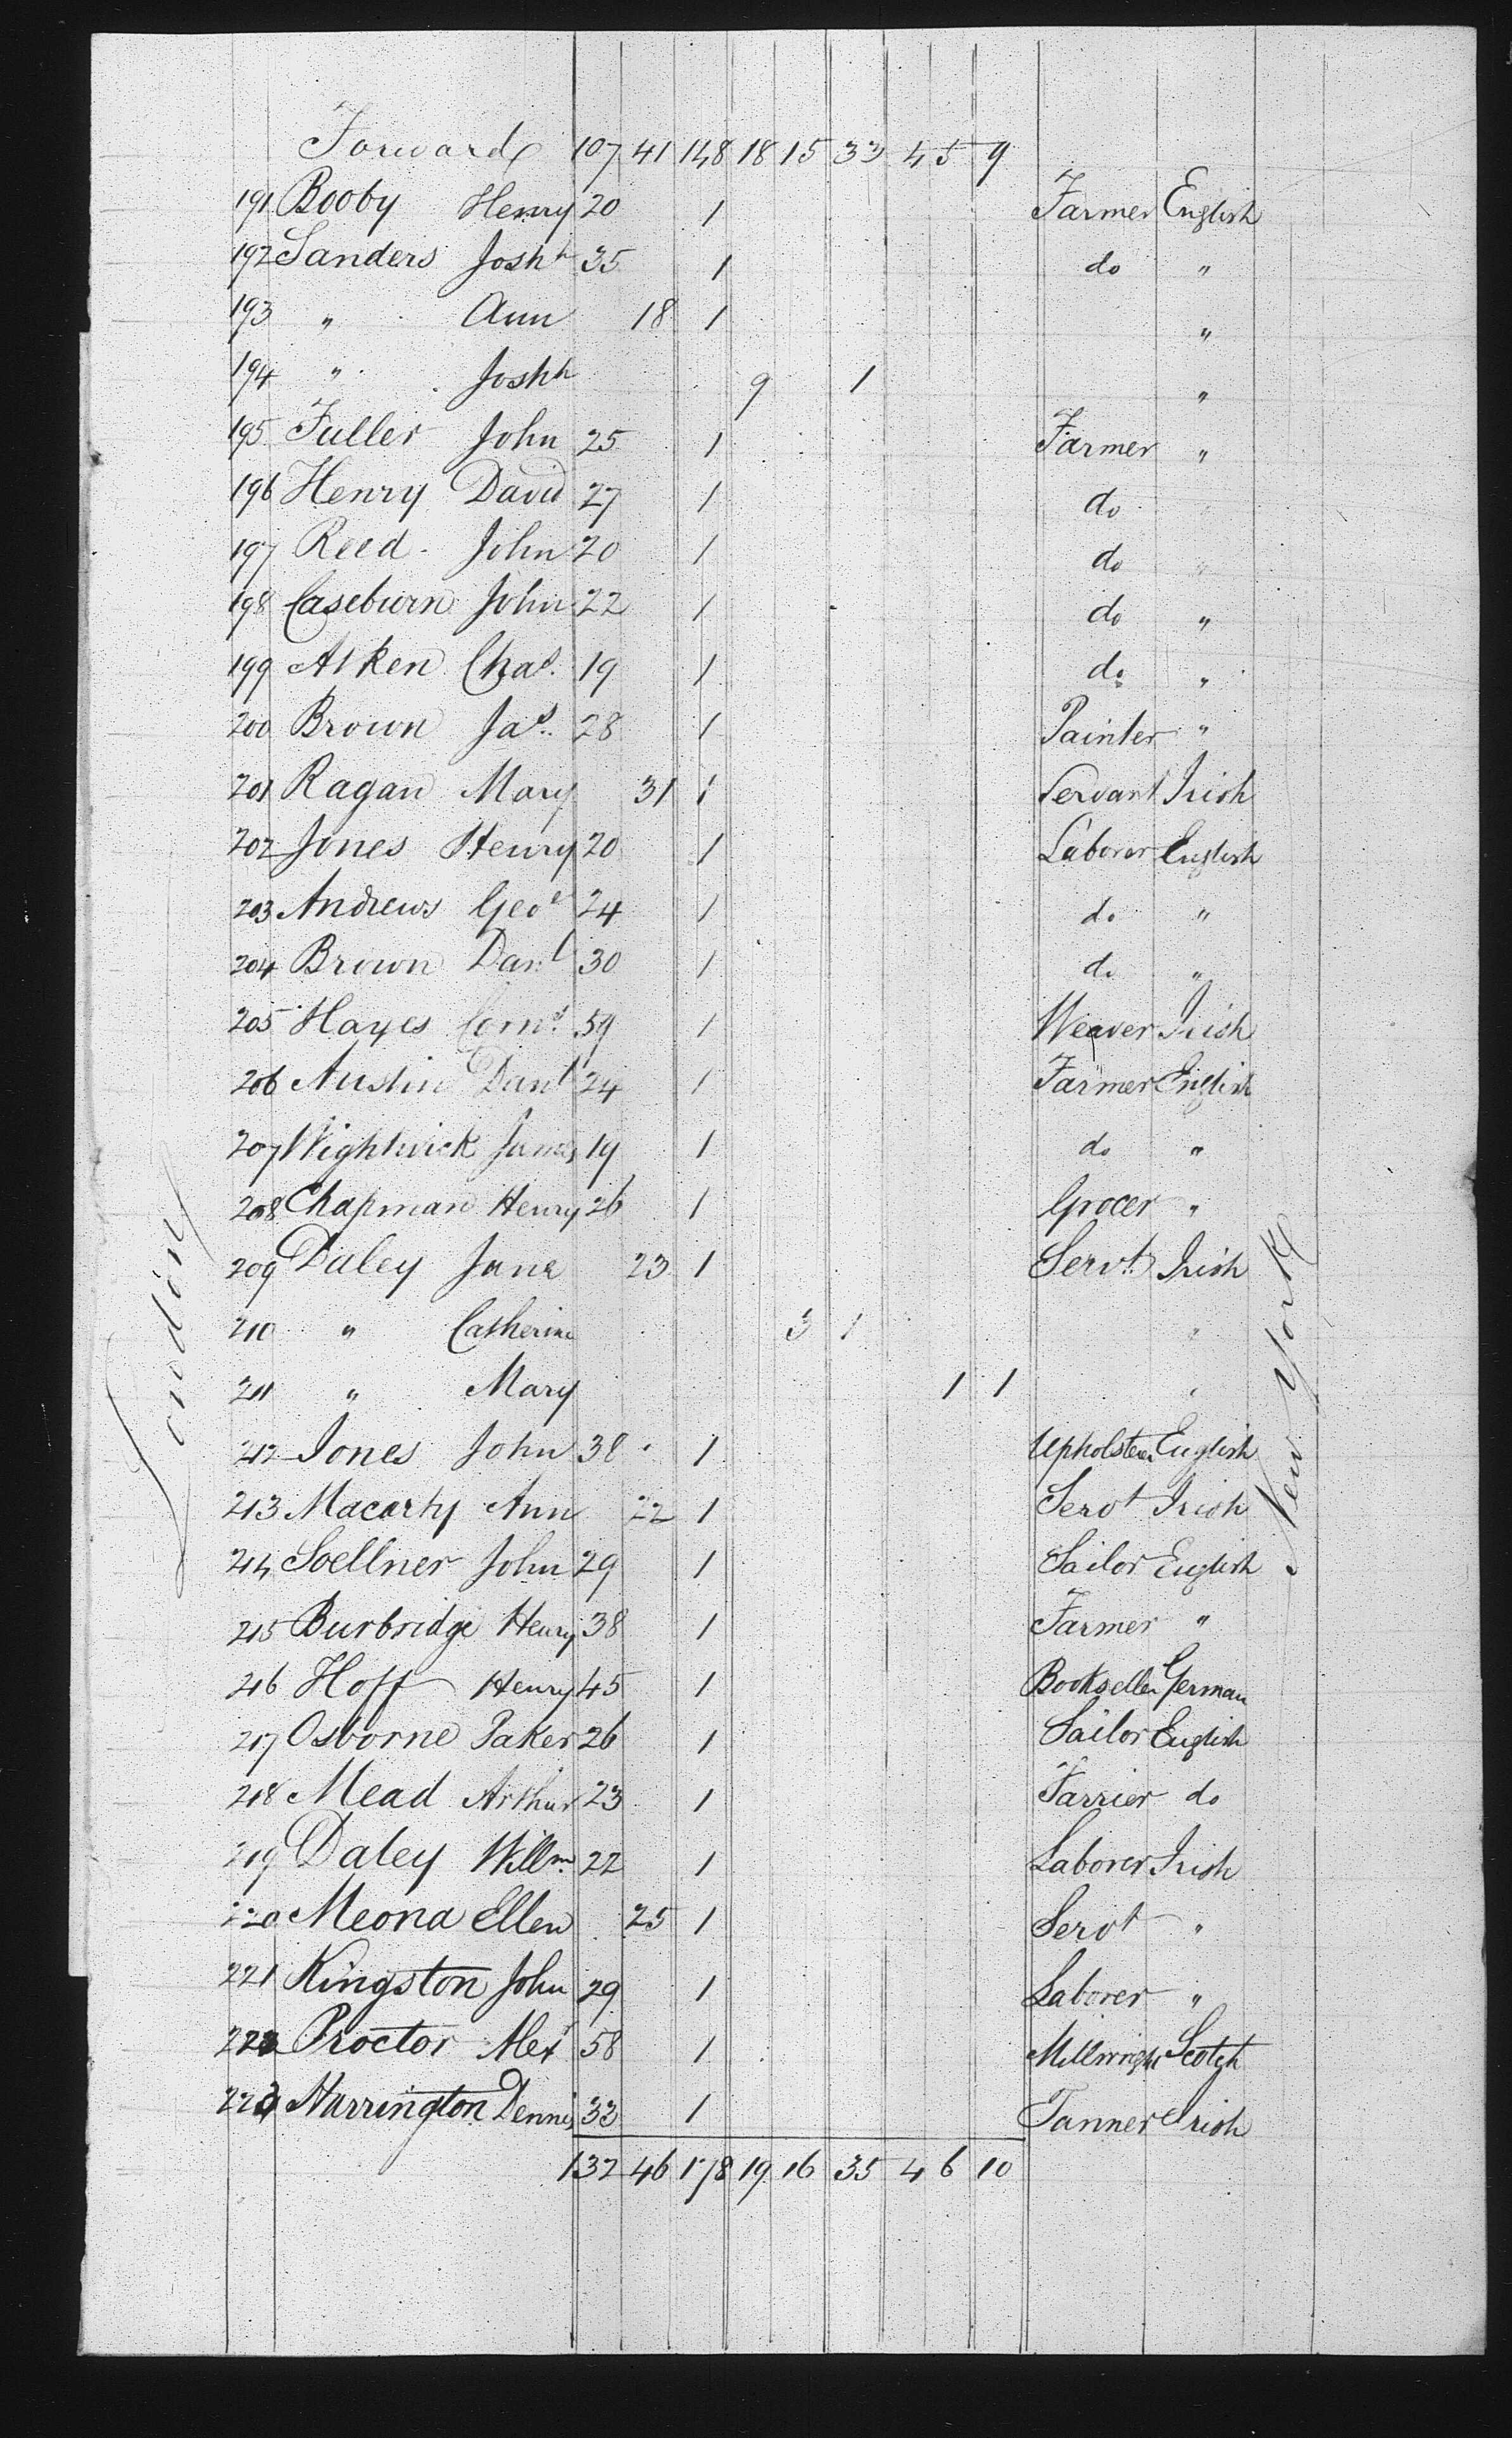 Forward 107 41 148 18 15 33 4 5 9
191 Booby Henry 20 1 Farmer English
192 Sanders Joshh 35 1 do "
193 " Ann 18 1 "
194 " Joshh 9 1 "
195 Fuller John 25 1 Farmer "
196 Henry David 27 1 do "
197 Reed John 20 1 do "
198 Caseburn John 22 1 do "
199 Atken Chas. 19 1 do "
200 Brown Jas. 28 1 Painter "
201 Ragan Mary 31 1 Servant Irish
202 Jones Henry 20 1 Laborer English
203 Andrews Geoe 24 1 do "
204 Brown Danl 30 1 do "
205 Hayes Corns. 59 1 Weaver Irish
206 Austin Danl 24 1 Farmer English
207 Wightwick James 19 1 do "
208 Chapman Henry 26 1 Grocer "
209 Daley Jane 23 1 Servt. Irish
210 " Catherine 3 1 "
211 " Mary 1 1 "
212 Jones John 38 1 Upholsterer English
213 Macarty Ann 22 1 Servt Irish
214 Soellner John 29 1 Sailor English
215 Burbridge Henry 38 1 Farmer "
216 Hoff Henry 45 1 Bookseller German
217 Osborne Paker 26 1 Sailor English
218 Mead Arthur 23 1 Farrier do
219 Daley Willm. 22 1 Laborer Irish
220 Meona Ellen 25 1 Servt "
221 Kingston John 29 1 Laborer "
222 Proctor Alexr 58 1 Millwright Scotch
223 Harrington Dennis 33 1 Tanner Irish
132 46 178 19 16 35 4 6 10
London
New York